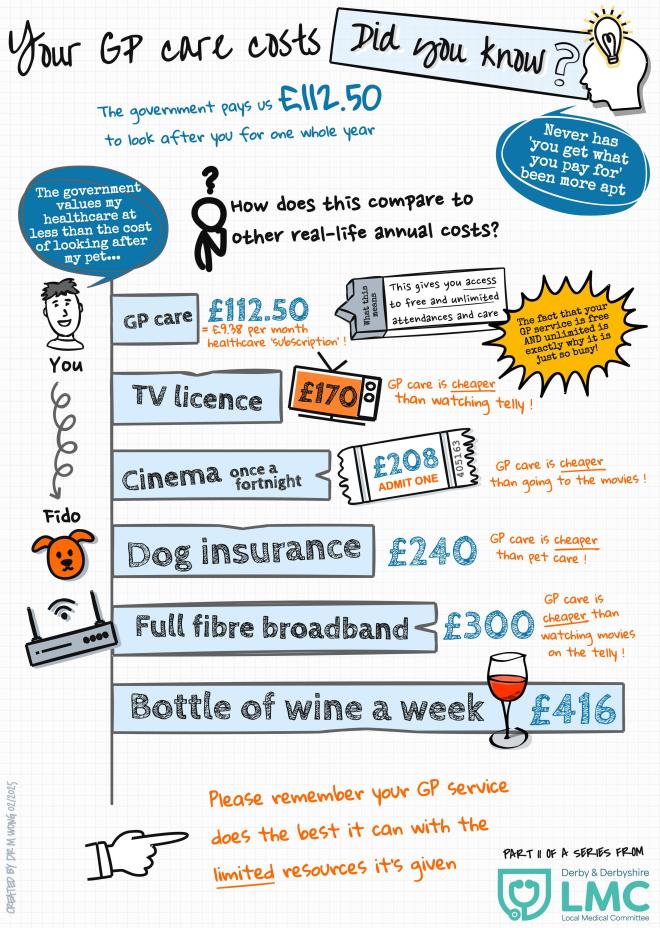 Your GP care costs
Did you know?
The government pays us £112.50
to look after you for one whole year
Never has
'you get what
you pay for'
been more apt
The government
values my
healthcare at
less than the cost
of looking after
my pet...
?
How does this compare to
other real-life annual costs?
You
GP care
£112.50
= £9.38 per month
healthcare 'subscription' !
What this
means
This gives you access
to free and unlimited
attendances and care
The fact that your
GP service is free
AND unlimited is
exactly why it is
just so busy!
TV licence
£170
GP care is cheaper
than watching telly !
Cinema once a
fortnight
£208
ADMIT ONE
405163
GP care is cheaper
than going to the movies !
Fido
Dog insurance
£240
GP care is cheaper
than pet care !
Full fibre broadband
£300
GP care is
cheaper than
watching movies
on the telly !
Bottle of wine a week
£416
Please remember your GP service
does the best it can with the
limited resources it's given
CREATED BY DR M WONG 02/2025
PART 11 OF A SERIES FROM
Derby & Derbyshire
LMC
Local Medical Committee